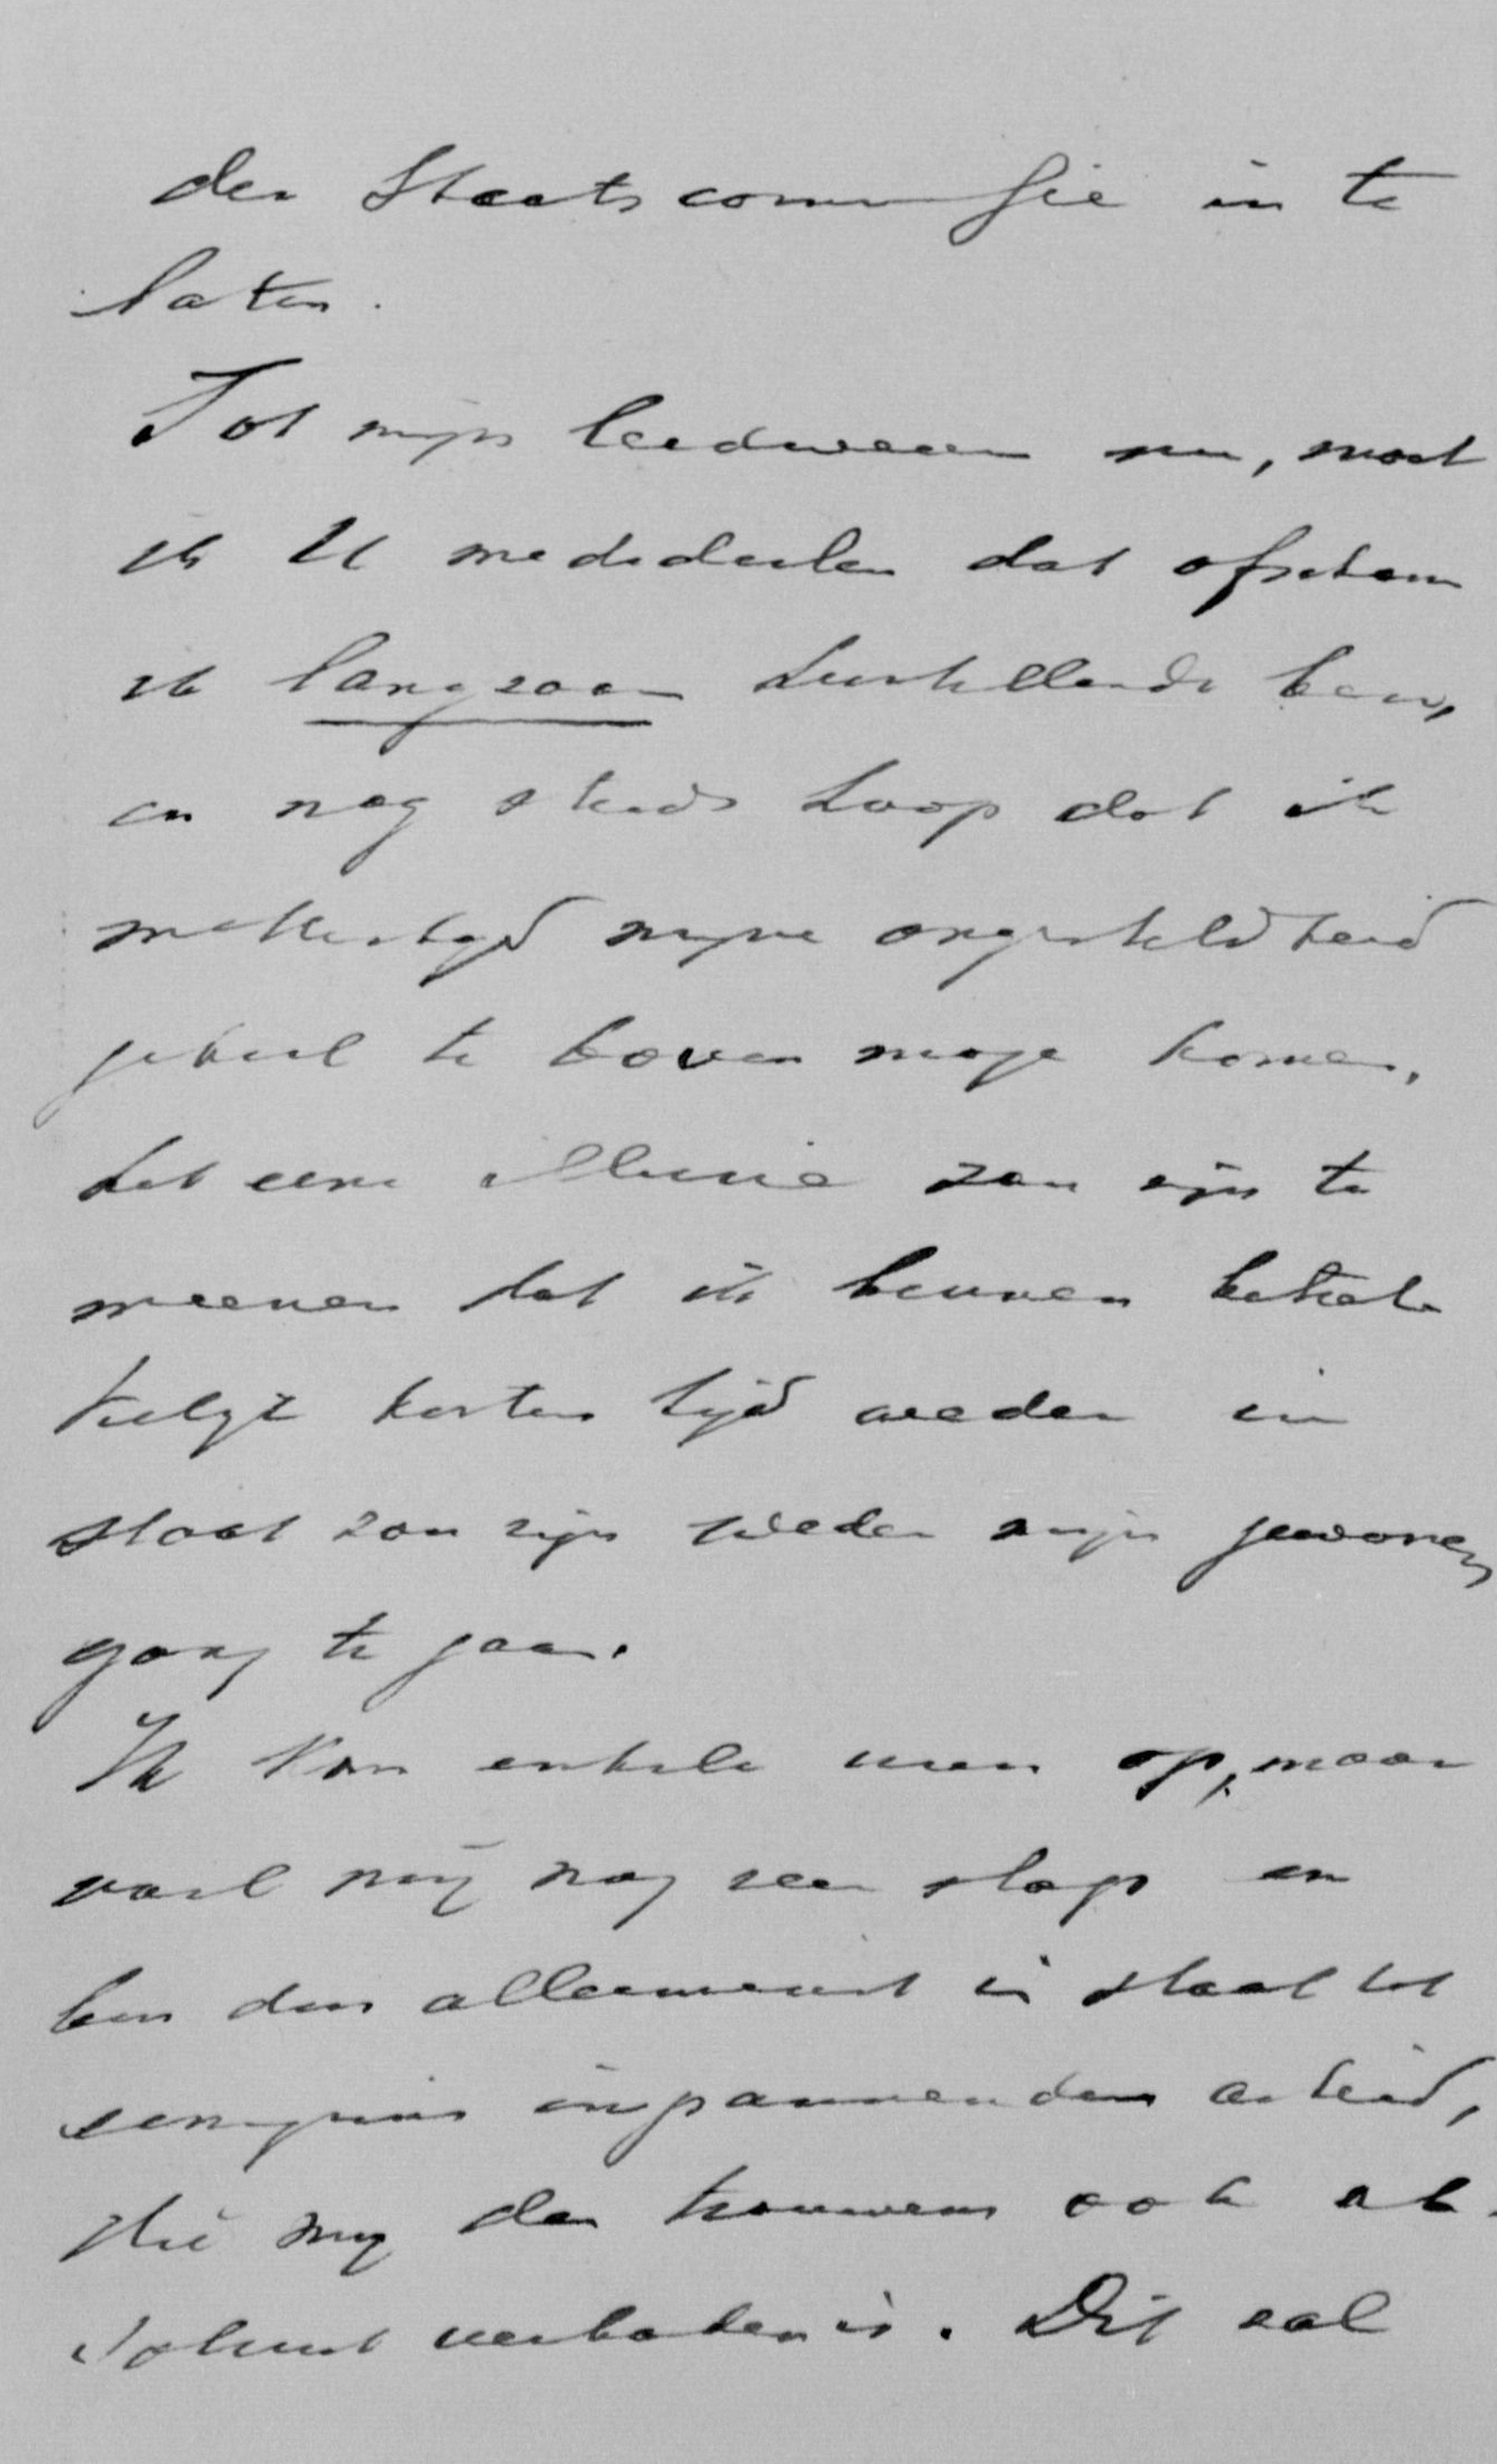 der Staatscommissie in te
laten.
Tot mijn leedwezen nu, moet
ik U mededeelen dat ofschoon
ik langzaam herstellende ben,
en nog steeds hoop dat ik
mettertijd mijne ongesteldheid
geheel te boven moge komen,
het eene illusie zou zijn te
meenen dat ik binnen betrek-
kelijk korten tijd weder in
staat zou zijn weder mijn gewonen
gang te gaan.
Ik kom enkele uren op, maar
voel mij nog zeer slap en
ben dus allerminst in staat tot
eenigszins inspannenden arbeid,
die mij dan trouwens ook ab-
soluut verboden is. Dit zal